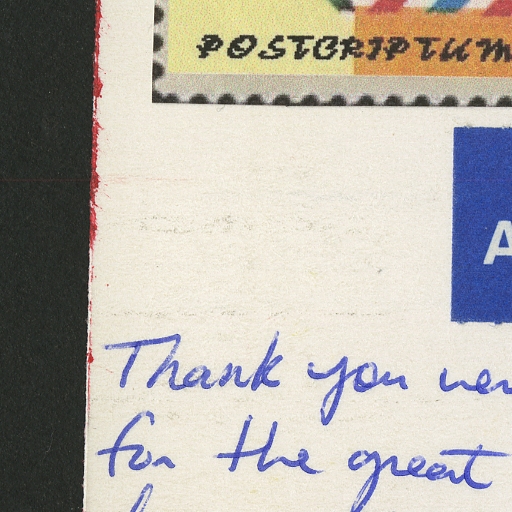 POSTCRIPTUM
A
Thank you ver
for the great